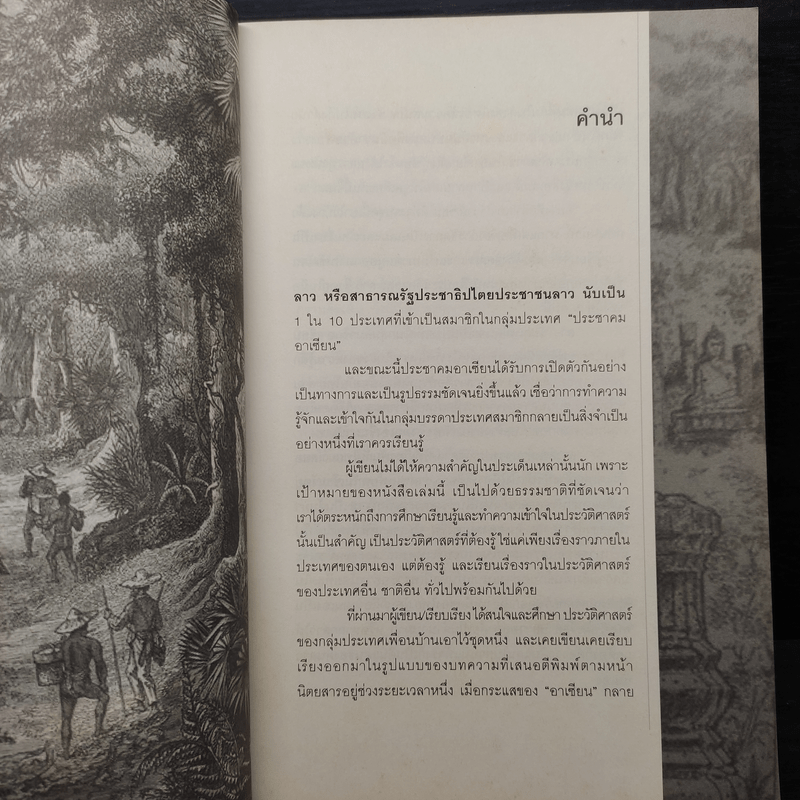 คำนำ
ลาว หรือสาธารณรัฐประชาธิปไตยประชาชนลาว นับเป็น
1 ใน 10 ประเทศที่เข้าเป็นสมาชิกในกลุ่มประเทศ “ประชาคม
อาเซียน”
และขณะนี้ประชาคมอาเซียนได้รับการเปิดตัวกันอย่าง
เป็นทางการและเป็นรูปธรรมชัดเจนยิ่งขึ้นแล้ว เชื่อว่าการทำความ
รู้จักและเข้าใจกันในกลุ่มบรรดาประเทศสมาชิกกลายเป็นสิ่งจำเป็น
อย่างหนึ่งที่เราควรเรียนรู้
ผู้เขียนไม่ได้ให้ความสำคัญในประเด็นเหล่านั้นนัก เพราะ
เป้าหมายของหนังสือเล่มนี้ เป็นไปด้วยธรรมชาติที่ชัดเจนว่า
เราได้ตระหนักถึงการศึกษาเรียนรู้และทำความเข้าใจในประวัติศาสตร์
นั้นเป็นสำคัญ เป็นประวัติศาสตร์ที่ต้องรู้ ใช่แค่เพียงเรื่องราวภายใน
ประเทศของตนเอง แต่ต้องรู้ และเรียนเรื่องราวในประวัติศาสตร์
ของประเทศอื่น ชาติอื่น ทั่วไปพร้อมกันไปด้วย
ที่ผ่านมาผู้เขียน/เรียบเรียง ได้สนใจและศึกษา ประวัติศาสตร์
ของกลุ่มประเทศเพื่อนบ้านเอาไว้ชุดหนึ่ง และเคยเขียนเคยเรียบ
เรียงออกมาในรูปแบบของบทความที่เสนอตีพิมพ์ตามหน้า
นิตยสารอยู่ช่วงระยะเวลาหนึ่ง เมื่อกระแสของ “อาเซียน” กลาย